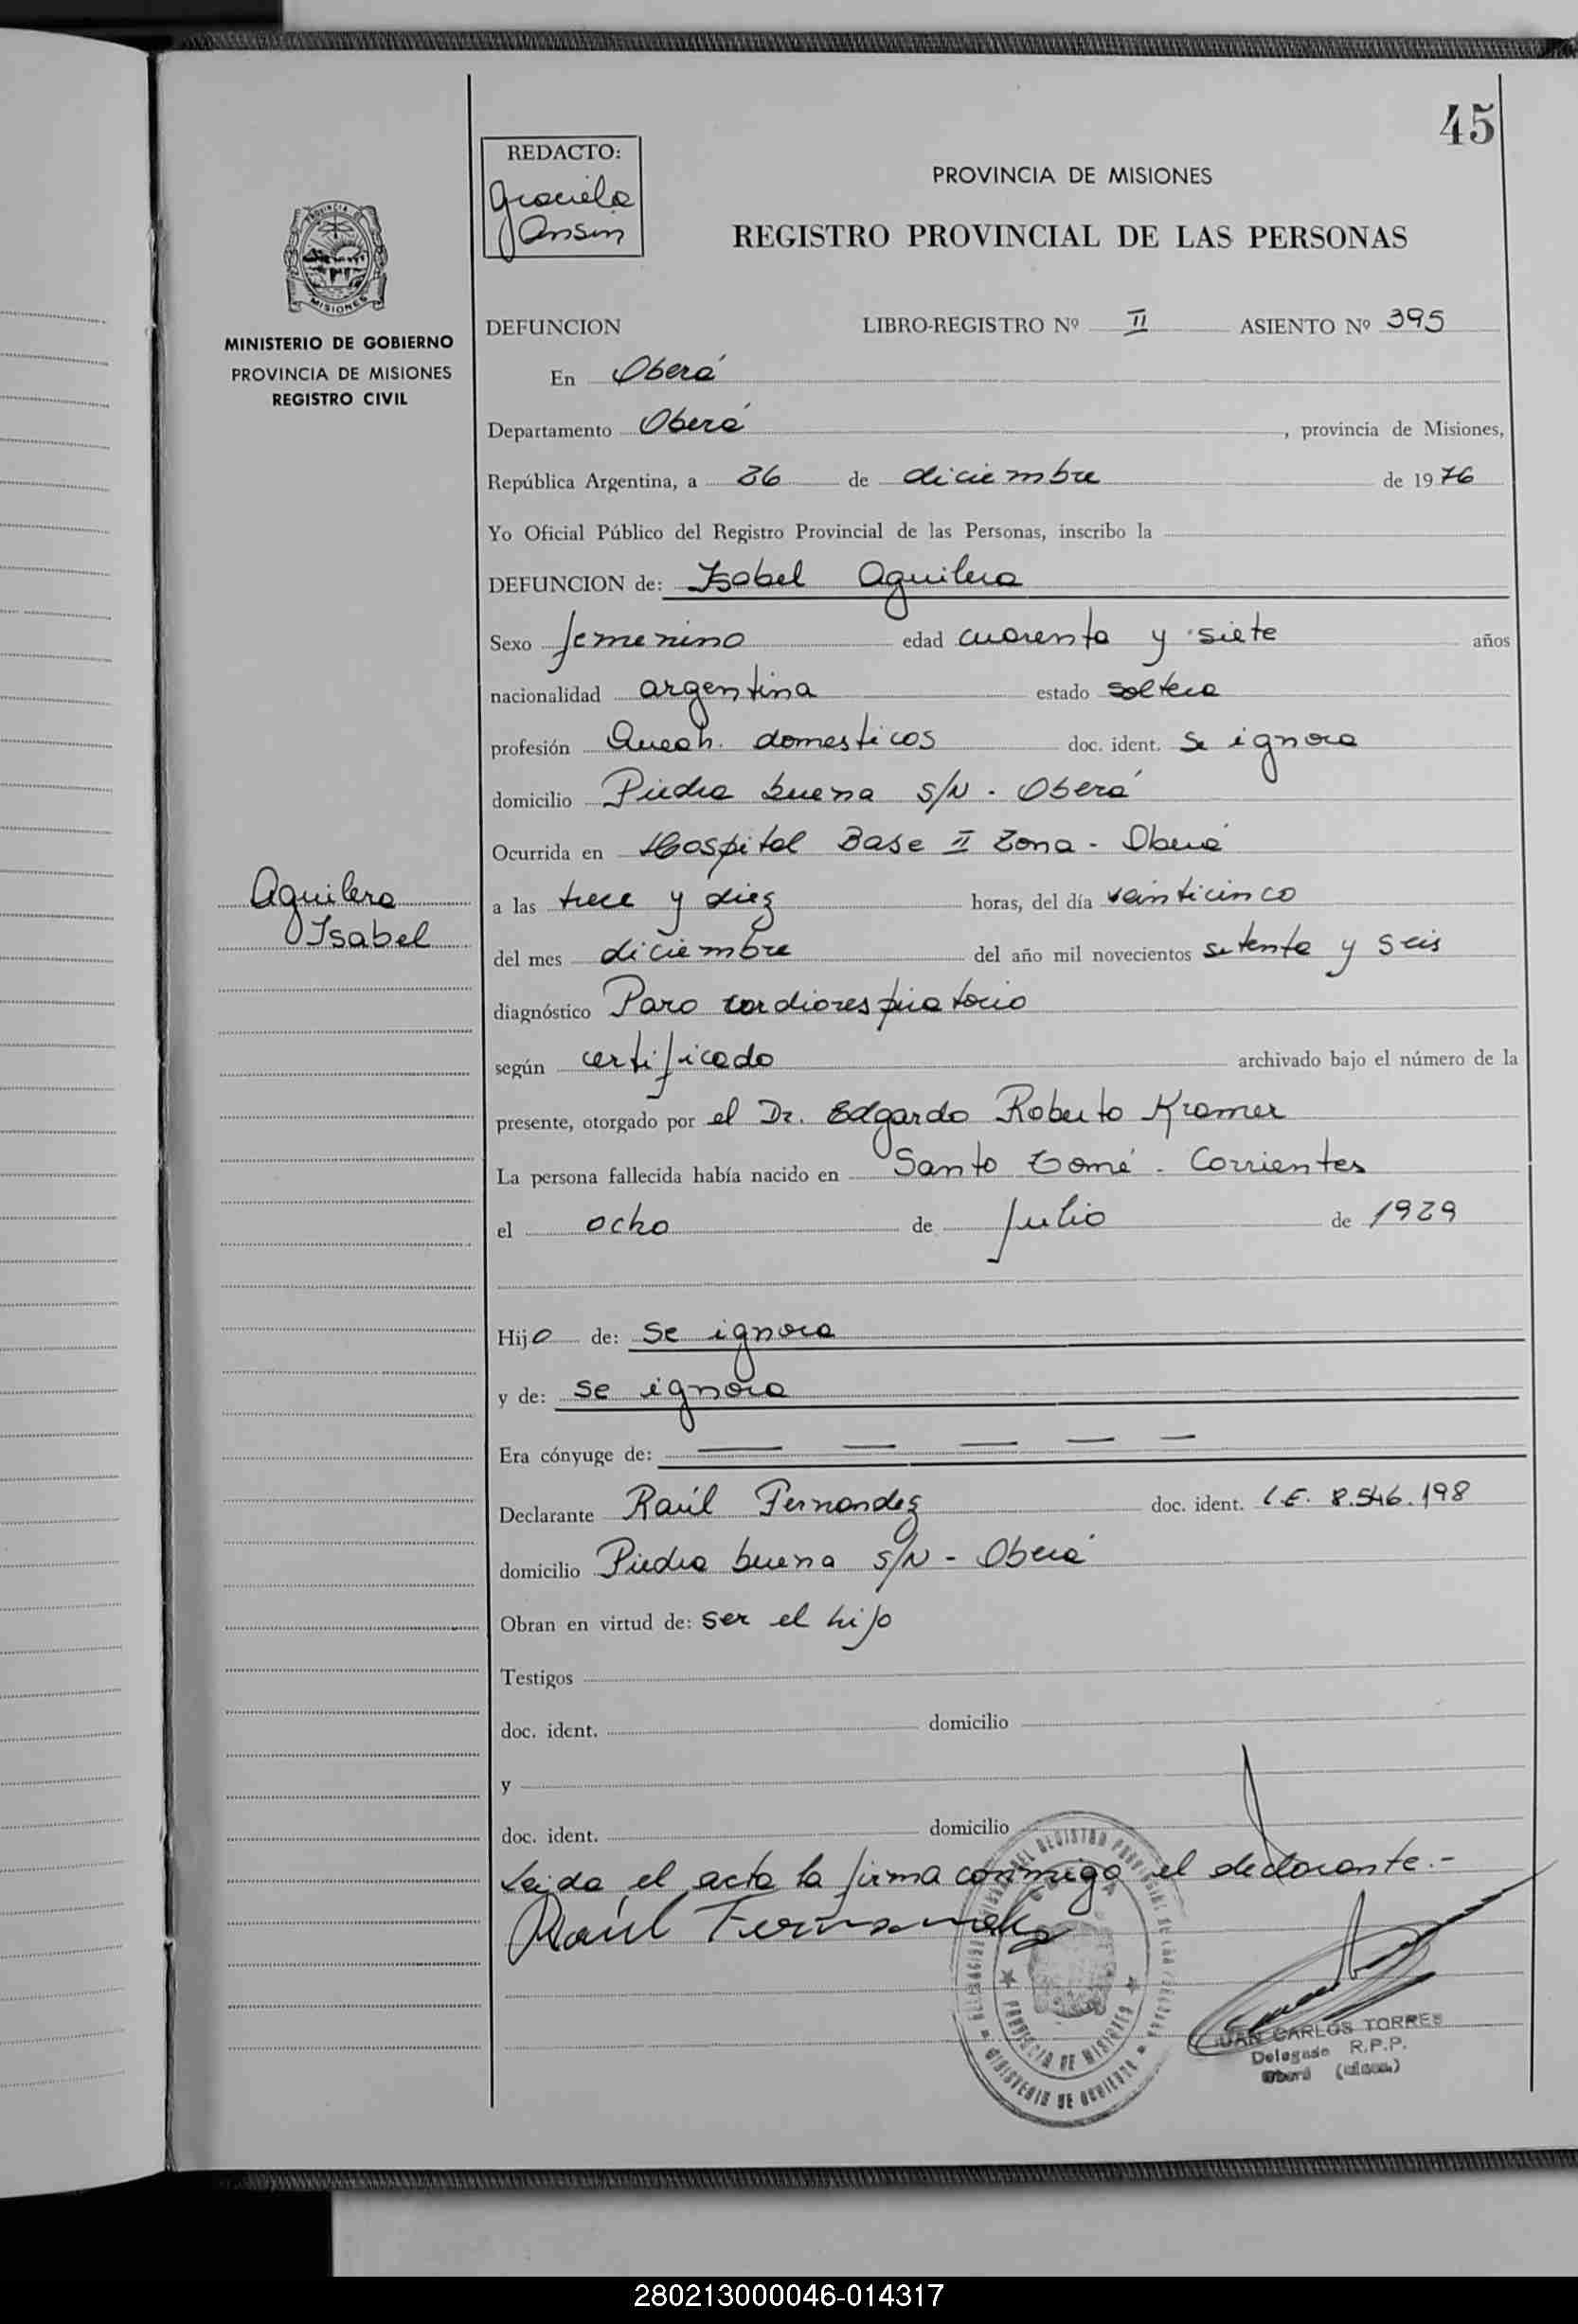 45
REDACTO:
Graciela
Ansin
PROVINCIA DE MISIONES
REGISTRO PROVINCIAL DE LAS PERSONAS
PROVINCIA DE
MISIONES
MINISTERIO DE GOBIERNO
PROVINCIA DE MISIONES
REGISTRO CIVIL
DEFUNCION LIBRO-REGISTRO Nº II ASIENTO Nº 395
En Oberá
Departamento Oberá, provincia de Misiones,
República Argentina, a 26 de diciembre de 1976
Yo Oficial Público del Registro Provincial de las Personas, inscribo la
DEFUNCION de: Isabel Aguilera
Sexo femenino edad cuarenta y siete años
nacionalidad argentina estado soltera
profesión Queah. domesticos doc. ident. Se ignora
domicilio Piedra buena S/N. Oberá
Ocurrida en Hospital Base II Zona - Oberá
Aguilera
Isabel
a las trece y diez horas, del día veinticinco
del mes diciembre del año mil novecientos setenta y seis
diagnóstico Paro cardiorespiratorio
según certificado archivado bajo el número de la
presente, otorgado por el Dr. Edgardo Roberto Kramer
La persona fallecida había nacido en Santo Tomé - Corrientes
el ocho de Julio de 1929
Hija de: Se ignora
y de: Se ignora
Era cónyuge de: — — — — —
Declarante Raúl Fernandez doc. ident. L.E. 8.546.198
domicilio Piedra buena S/N - Oberá
Obran en virtud de: Ser el hijo
Testigos
doc. ident. domicilio
y
doc. ident. domicilio
Leida el acta la firma conmigo el declarante.-
Raúl Fernandez
PROVINCIA DE MISIONES
MINISTERIO DE GOBIERNO
JUAN CARLOS TORRES
Delegado R.P.P.
Oberá (Mnes.)
280213000046-014317